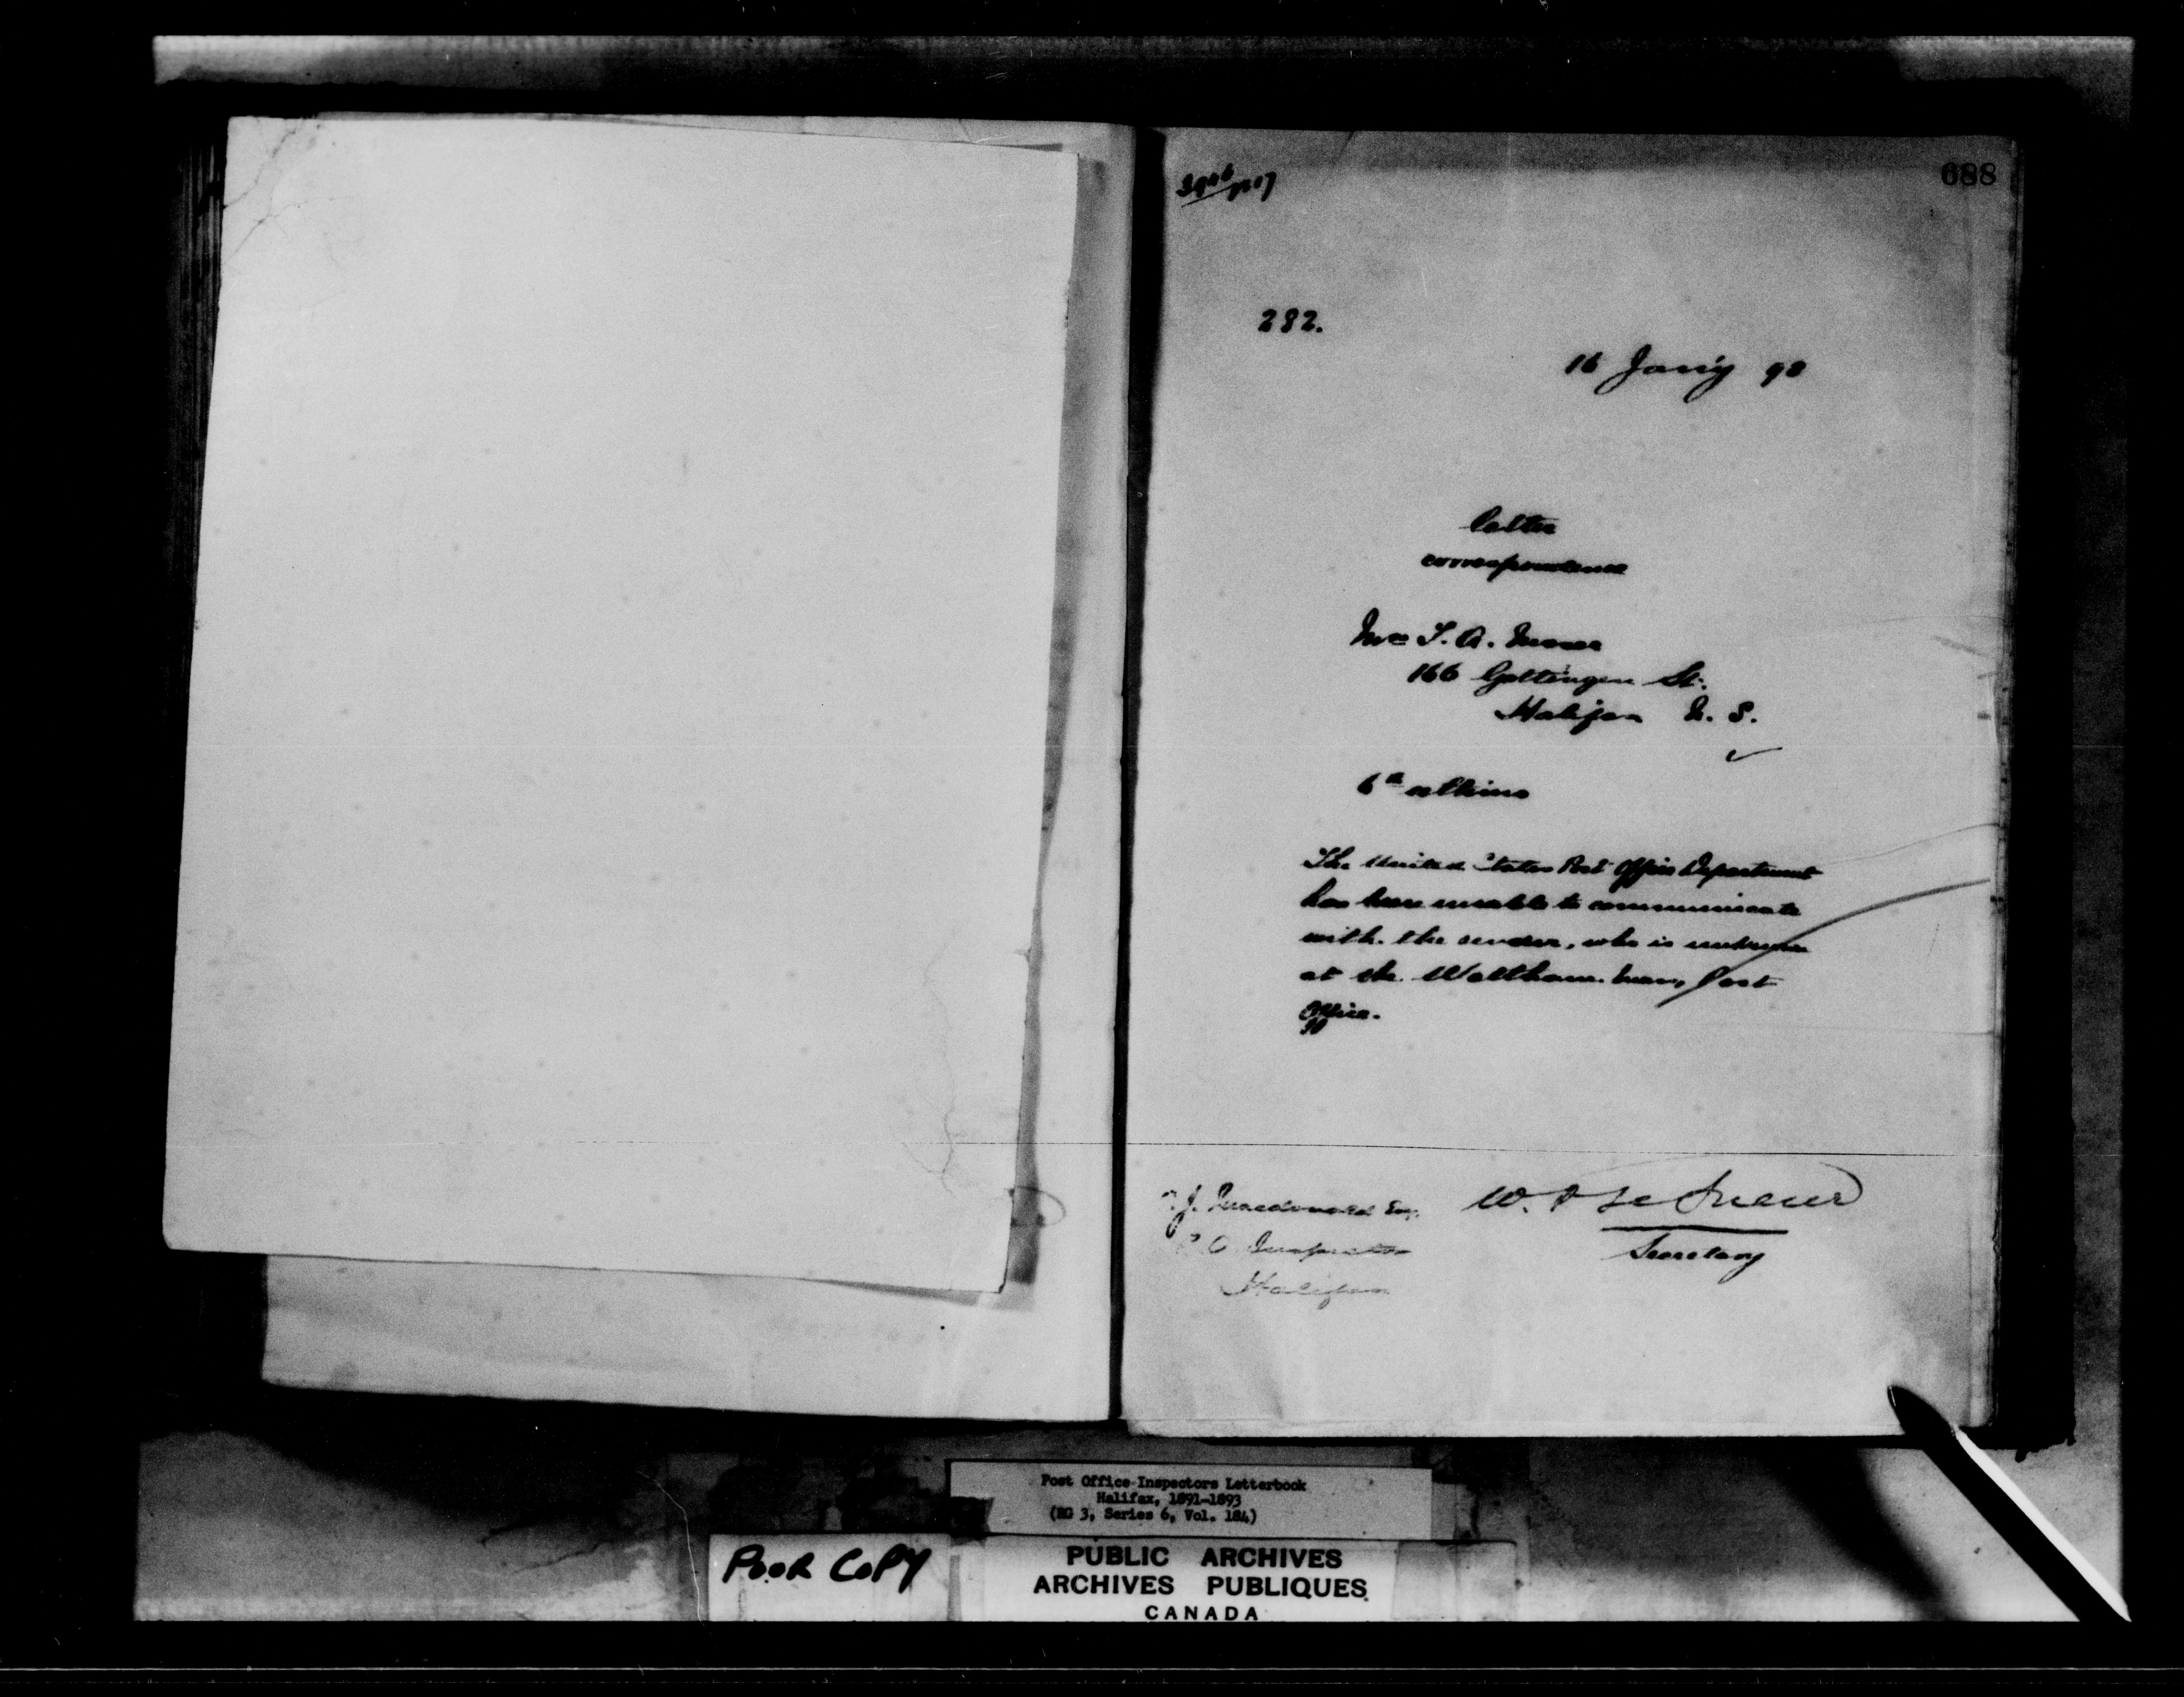 688
282.
16 Jany 93
letter
correspondence
Mrs S. A.
166 Gottingen St.
Halifax N. S.
6th ultimo
The United States Post Office Department
has been unable to communicate
with the sender, who is unknown
at the Waltham Mass, Post
Office.
J. Macdonald Esq.
P. O. Inspector
Halifax
W. D. LeSueur
Secretary
Post Office Inspectors Letterbook
Halifax, 1891-1893
(RG 3, Series 6, Vol. 184)
POOR COPY
PUBLIC ARCHIVES
ARCHIVES PUBLIQUES
CANADA